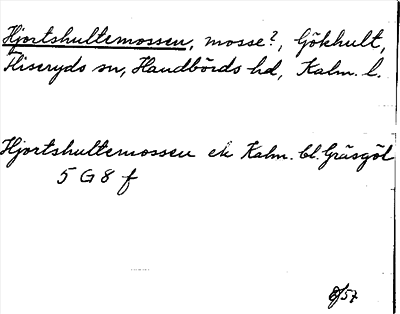 Hjortshultemossen, mosse?, Gökhult,
Kiseryds sn, Handbörds hd, Kalm. l.
Hjortshultemossen ek Kalm. bl. Gräsgöl
5 G 8 f
8/57